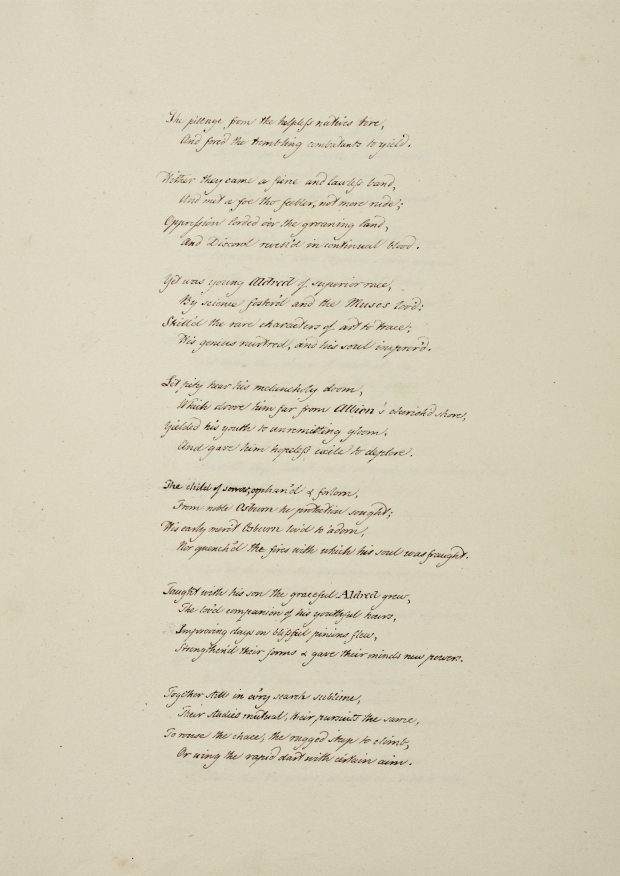 The pillage from the helpless natives tore,
And forc'd the trembling combatants to yield.
Hither they came a fierce and lawless band,
And met a foe tho' feebler, not more rude;
Oppression lorded o'er the groaning land,
And Discord revell'd in continual blood.
Yet was young Aldred of superior race,
By science foster'd and the Muses lov'd;
Skill'd the rare characters of art to trace;
His genius nurtured, and his soul improv'd.
Let pity hear his melancholy doom,
Which drove him far from Albion's cherish'd shore,
Yielded his youth to unremitting gloom,
And gave him hopeless exile to deplore.
The child of sorrow, orphan'd & forlorn,
From noble Osburn he protection sought;
His early merit Osburn lov'd to adorn,
Nor quench'd the fires with which his soul was fraught.
Taught with his son the graceful Aldred grew,
The lov'd companion of his youthful hours,
Improving days on blissful pinions flew,
Strengthen'd their forms & gave their minds new powers.
Together still in ev'ry search sublime,
Their studies mutual, their pursuits the same,
To rouse the chace, the rugged steep to climb,
Or wing the rapid dart with certain aim.